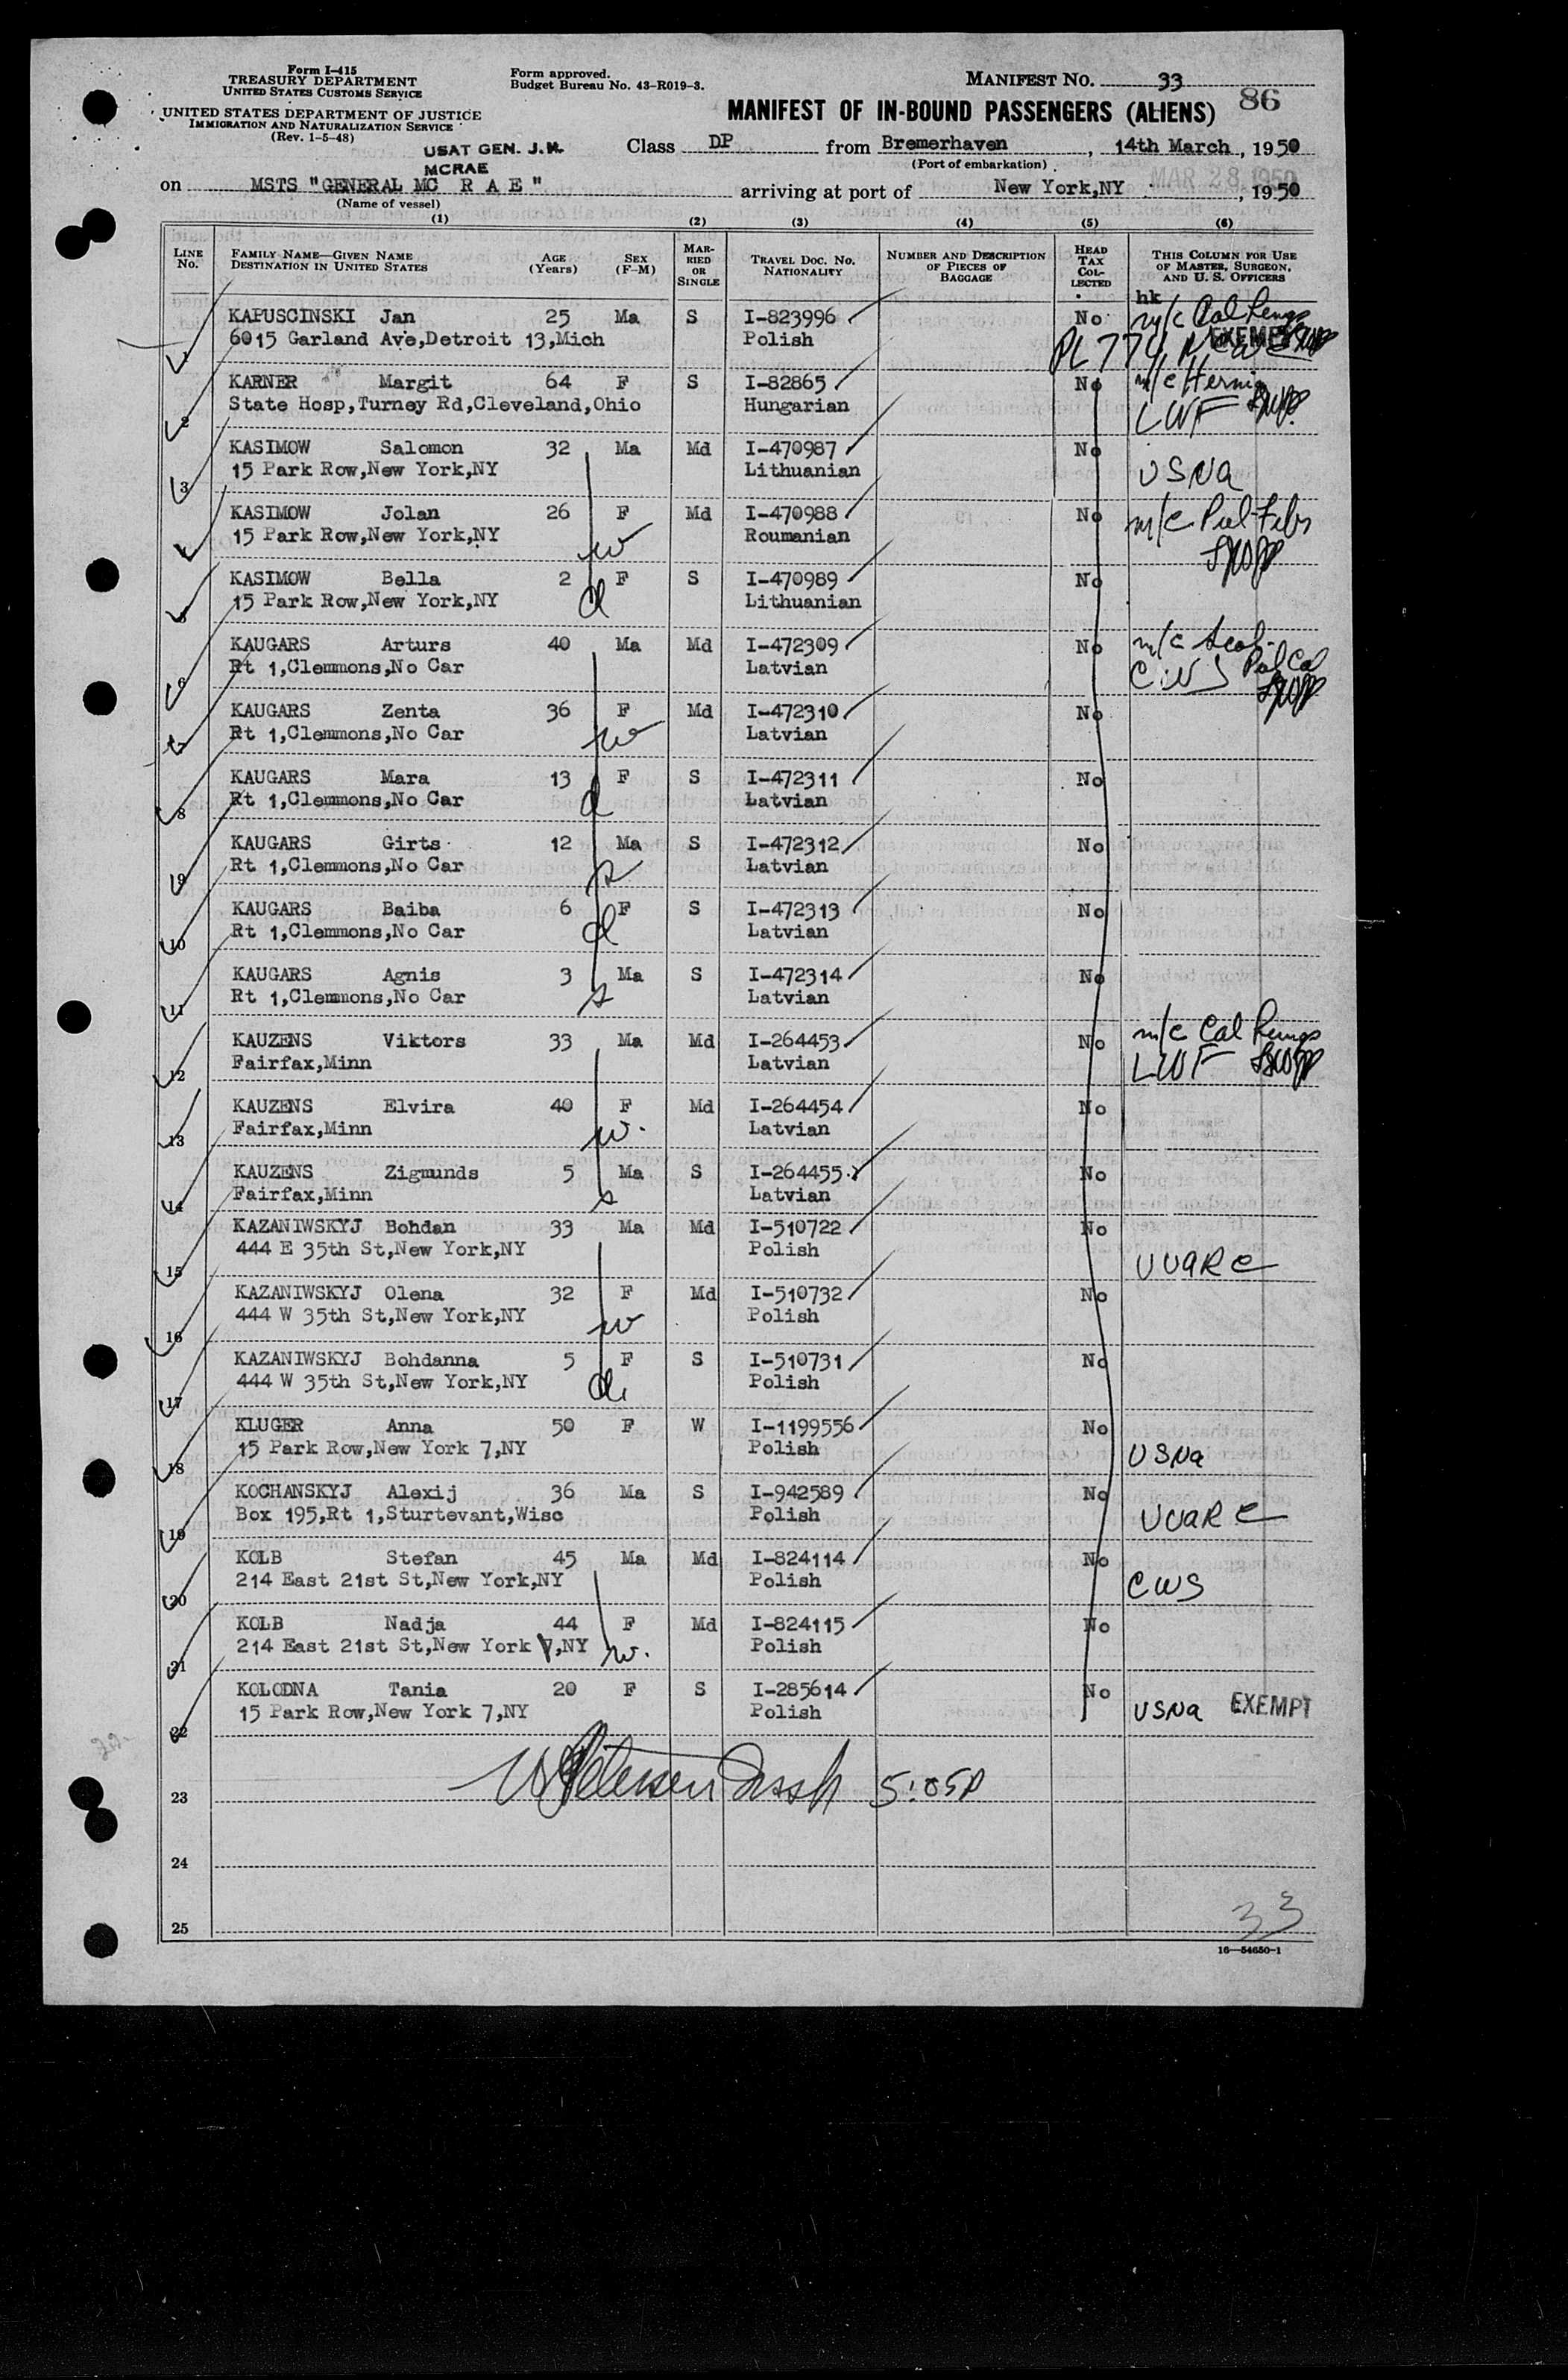 Form I-415
TREASURY DEPARTMENT
UNITED STATES CUSTOMS SERVICE
Form approved.
Budget Bureau No. 43-R019-3.
MANIFEST NO. 33
86
UNITED STATES DEPARTMENT OF JUSTICE
IMMIGRATION AND NATURALIZATION SERVICE
(Rev. 1-5-48)
MANIFEST OF IN-BOUND PASSENGERS (ALIENS)
USAT GEN. J.H.
MCRAE
Class DP from Bremerhaven, 14th March, 1950
(Port of embarkation)
MAR 28 1950
on MSTS "GENERAL MC R A E" arriving at port of New York,NY, 1950
(Name of vessel)
(1) (2) (3) (4) (5) (6)
LINE NO. FAMILY NAME—GIVEN NAME DESTINATION IN UNITED STATES AGE (Years) SEX (F-M) MARRIED OR SINGLE TRAVEL DOC. NO. NATIONALITY NUMBER AND DESCRIPTION OF PIECES OF BAGGAGE HEAD TAX COLLECTED THIS COLUMN FOR USE OF MASTER, SURGEON, AND U. S. OFFICERS
hk
1 KAPUSCINSKI Jan 25 Ma S I-823996 No m/c Cal Lungs
6015 Garland Ave,Detroit 13,Mich Polish PL 774 NCWC EXEMPT
2 KARNER Margit 64 F S I-82865 No m/c Hernia
State Hosp,Turney Rd,Cleveland,Ohio Hungarian LWF
3 KASIMOW Salomon 32 Ma Md I-470987 No
15 Park Row,New York,NY Lithuanian USNA
4 KASIMOW Jolan 26 F Md I-470988 No m/c Pul Fibr
15 Park Row,New York,NY w Roumanian
5 KASIMOW Bella 2 F S I-470989 No
15 Park Row,New York,NY d Lithuanian
6 KAUGARS Arturs 40 Ma Md I-472309 No m/c
Rt 1,Clemmons,No Car Latvian CWS Pul Cal
7 KAUGARS Zenta 36 F Md I-472310 No
Rt 1,Clemmons,No Car w Latvian
8 KAUGARS Mara 13 F S I-472311 No
Rt 1,Clemmons,No Car d Latvian
9 KAUGARS Girts 12 Ma S I-472312 No
Rt 1,Clemmons,No Car s Latvian
10 KAUGARS Baiba 6 F S I-472313 No
Rt 1,Clemmons,No Car d Latvian
11 KAUGARS Agnis 3 Ma S I-472314 No
Rt 1,Clemmons,No Car s Latvian
12 KAUZENS Viktors 33 Ma Md I-264453 No m/c Cal Lungs
Fairfax,Minn Latvian LWF
13 KAUZENS Elvira 40 F Md I-264454 No
Fairfax,Minn w. Latvian
14 KAUZENS Zigmunds 5 Ma S I-264455 No
Fairfax,Minn s Latvian
15 KAZANIWSKYJ Bohdan 33 Ma Md I-510722 No
444 E 35th St,New York,NY Polish UUARC
16 KAZANIWSKYJ Olena 32 F Md I-510732 No
444 W 35th St,New York,NY w Polish
17 KAZANIWSKYJ Bohdanna 5 F S I-510731 No
444 W 35th St,New York,NY d Polish
18 KLUGER Anna 50 F W I-1199556 No
15 Park Row,New York 7,NY Polish USNA
19 KOCHANSKYJ Alexij 36 Ma S I-942589 No
Box 195,Rt 1,Sturtevant,Wisc Polish UUARC
20 KOLB Stefan 45 Ma Md I-824114 No
214 East 21st St,New York,NY Polish CWS
21 KOLB Nadja 44 F Md I-824115 No
214 East 21st St,New York 7,NY w. Polish
22 KOLODNA Tania 20 F S I-285614 No
15 Park Row,New York 7,NY Polish USNA EXEMPT
23 5:05P
24
25
33
16—54650-1